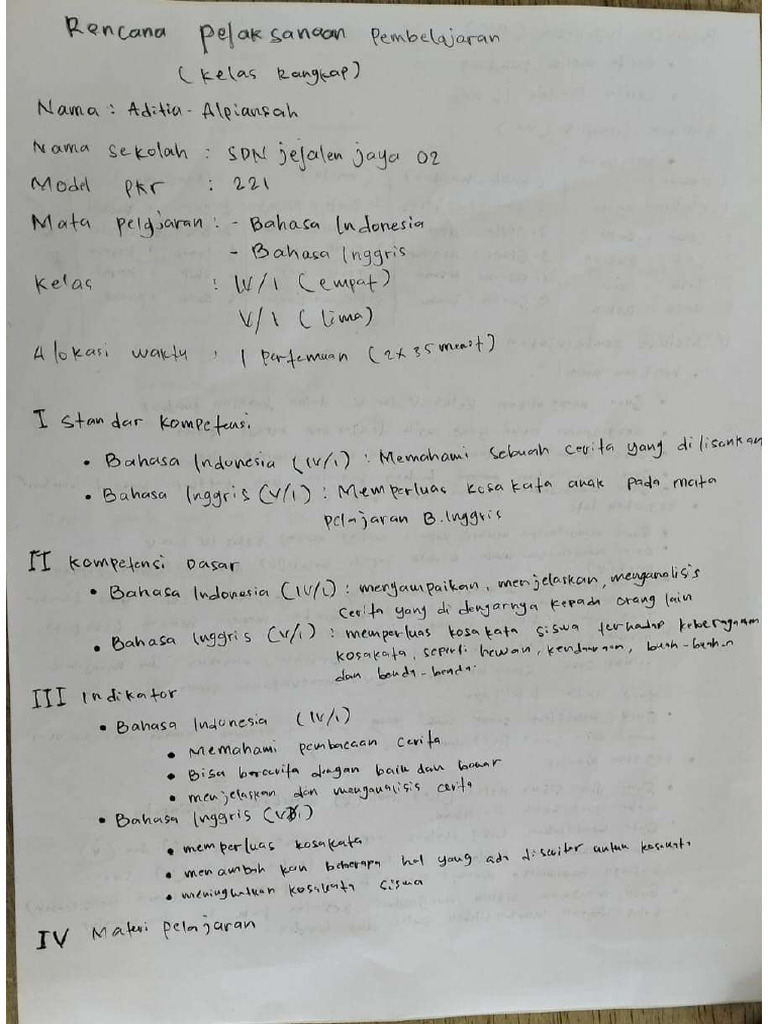 Rencana Pelaksanaan Pembelajaran
(Kelas Rangkap)
Nama : Aditia Alpiansah
Nama Sekolah : SDN jejalen jaya 02
Model PKR : 221
Mata pelajaran : - Bahasa Indonesia
- Bahasa Inggris
Kelas : IV/1 (empat)
V/1 (lima)
Alokasi waktu : 1 pertemuan (2x35 menit)
I Standar Kompetensi
• Bahasa Indonesia (IV/1) : Memahami sebuah cerita yang dilisankan
• Bahasa Inggris (V/1) : Memperluas kosakata anak pada mata
pelajaran B. Inggris
II Kompetensi Dasar
• Bahasa Indonesia (IV/1) : menyampaikan, menjelaskan, menganalisis
cerita yang di dengarnya kepada orang lain
• Bahasa Inggris (V/1) : memperluas kosakata siswa terhadap keberagaman
kosakata, seperti hewan, kendaraan, buah-buahan
dan benda-benda.
III Indikator
• Bahasa Indonesia (IV/1)
• Memahami pembacaan cerita
• Bisa bercerita dengan baik dan benar
• menjelaskan dan menganalisis cerita
• Bahasa Inggris (V/1)
• memperluas kosakata
• menambah kan beberapa hal yang ada disekitar untuk kosakata
• meningkatkan kosakata siswa
IV Materi Pelajaran